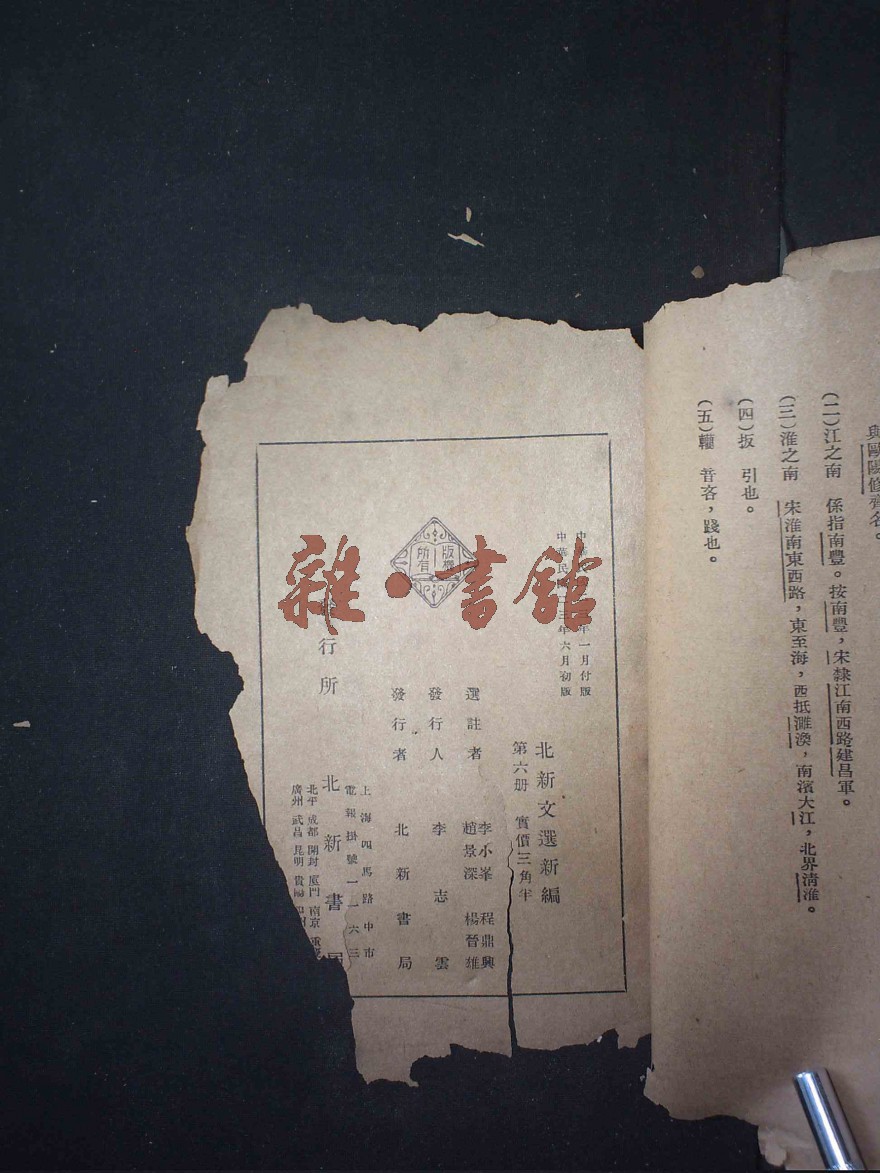 與歐陽修齊名。
(二)江之南 係指南豐。按南豐,宋隸江南西路建昌軍。
(三)淮之南 宋淮南東西路,東至海,西抵濉渙,南濱大江,北界清淮。
(四)扳 引也。
(五)轥 音吝,踐也。
年一月付版
中華民 二三年六月初版
北新文選新編
第六册 實價三角半
選註者 李小峯 程鼎興
趙景深 楊晉雄
發行人 李志雲
發行者 北新書局
版權
所有
行所 北新書局
上海四馬路中市
電報掛號一一六三
北平 成都 開封 廈門 南京 重
廣州 武昌 昆明 貴陽
雜·書館